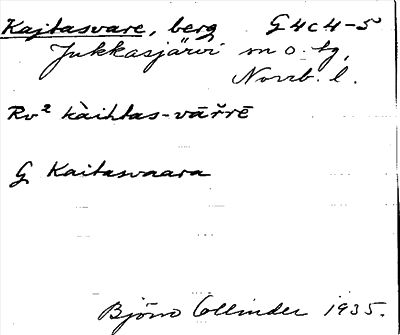 Kajtasvare, berg G4c4-5
Jukkasjärvi sn o. tg,
Norrb. l.
Rv² kàihtas-vāřrē
G Kaitasvaara
Björn Collinder 1935.